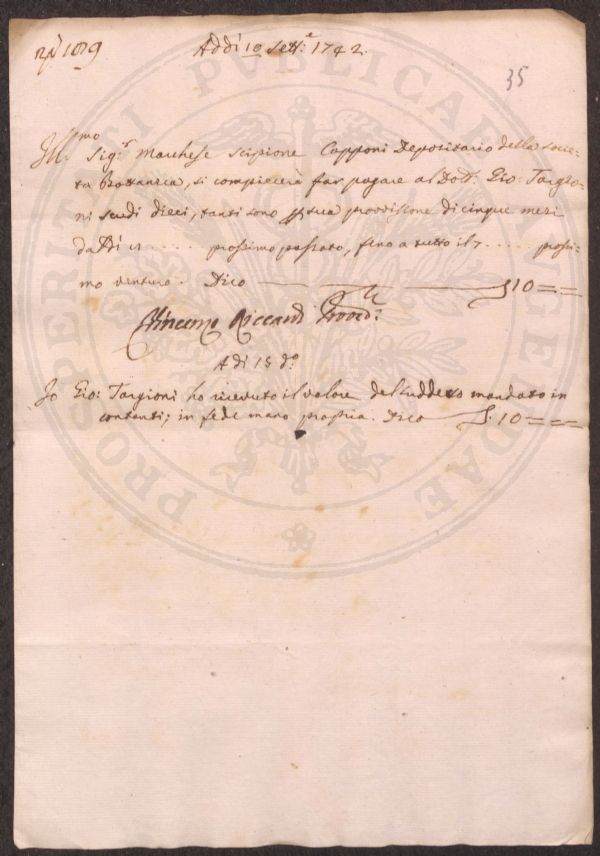 Addì 10 Sett.e 1742.
35
Ill.mo Sig.r Marchese Scipione Capponi Depositario della Socie-
ta Bottanica, si compiacerà far pagare al Dott. Gio: Targio-
ni scudi dieci, tanti sono p sua provvisione di cinque mesi
dal dì ..... prossimo passato, fino a tutto il ..... prossi-
mo venturo. Dico 10
Vincenzo Riccardi Provved:
Adì 15 d.o
Io Gio: Targioni ho ricevuto il valore del suddetto mandato in
contanti; in fede mano propria. Dico 10
PROSPERITATI PVBLICAE AVGENDAE